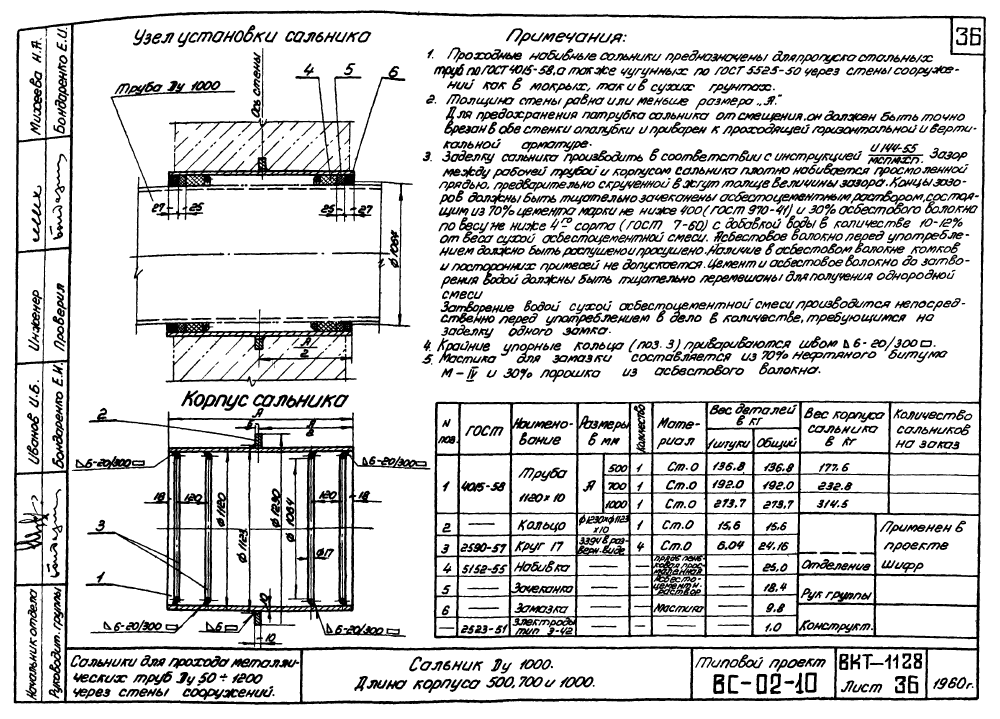 36
Узел установки сальника
Труба Ду 1000
Ось стены
4 5 6
27 25 25 27
ϕ1084
А/2
Корпус сальника
А
2
Б
А/2
⊿6-20/300▭
⊿6-20/300▭
18 120 ϕ1120 ϕ1123 ϕ1230 ϕ1084 120 18
ϕ17
3
1
10
⊿6-20/300▭ ⊿6▭ ⊿6-20/300▭
10
Примечания:
1. Проходные набивные сальники предназначены для пропуска стальных
труб по ГОСТ 4015-58, а также чугунных по ГОСТ 5525-50 через стены сооруже-
ний как в мокрых, так и в сухих грунтах.
2. Толщина стены равна или меньше размера „А".
Для предохранения патрубка сальника от смещения, он должен быть точно
врезан в обе стенки опалубки и приварен к проходящей горизонтальной и верти-
кальной арматуре.
3. Заделку сальника производить в соответствии с инструкцией И144-55/МСПМХП. Зазор
между рабочей трубой и корпусом сальника плотно набивается просмоленной
прядью, предварительно скрученной в жгут толще величины зазора. Концы зазо-
ров должны быть тщательно зачеканены асбестоцементным раствором, состоя-
щим из 70% цемента марки не ниже 400 (ГОСТ 970-41) и 30% асбестового волокна
по весу не ниже 4го сорта (ГОСТ 7-60) с добавкой воды в количестве 10-12%
от веса сухой асбестоцементной смеси. Асбестовое волокно перед употребле-
нием должно быть распушено и просушено. Наличие в асбестовом волокне комков
и посторонних примесей не допускается. Цемент и асбестовое волокно до затво-
рения водой должны быть тщательно перемешаны для получения однородной
смеси
Затворение водой сухой асбестоцементной смеси производится непосред-
ственно перед употреблением в дело в количестве, требующимся на
заделку одного замка.
4. Крайние упорные кольца (поз. 3) привариваются швом ⊿6-20/300▭.
5. Мастика для замазки составляется из 70% нефтяного битума
М-IV и 30% порошка из асбестового волокна.
N поз. ГОСТ Наимено-вание Размеры в мм Количество Мате-риал Вес деталей в кг 1 штуки Общий Вес корпуса сальника в кг Количество сальников на заказ
1 4015-58 Труба 1120×10 А 500 1 Ст.0 136.8 136.8 177.6
700 1 Ст.0 192.0 192.0 232.8
1000 1 Ст.0 273.7 273.7 314.5
2 — Кольцо ϕ1230×ϕ1123×10 1 Ст.0 15.6 15.6
3 2590-57 Круг 17 3394 в раз-верн. виде 4 Ст.0 6.04 24.16
4 5152-55 Набивка — — Прядь пень-ковая прос-моленная — 25.0
5 — Зачеканка — — Асбесто-цементн. раствор — 18.4
6 — Замазка — — Мастика — 9.8
2523-51 Электроды тип Э-42 — — — — 1.0
Применен в
проекте
Шифр
Отделение
Рук группы
Конструкт.
Сальники для прохода металли-
ческих труб Ду 50÷1200
через стены сооружений.
Сальник Ду 1000.
Длина корпуса 500, 700 и 1000.
Типовой проект
ВС-02-10
ВКТ-1128
Лист 36
1960г.
Начальник отдела Иванов И.Б. Инженер Михеева Н.А.
Руководит. группы Бондаренко Е.И. Проверил Бондаренко Е.И.